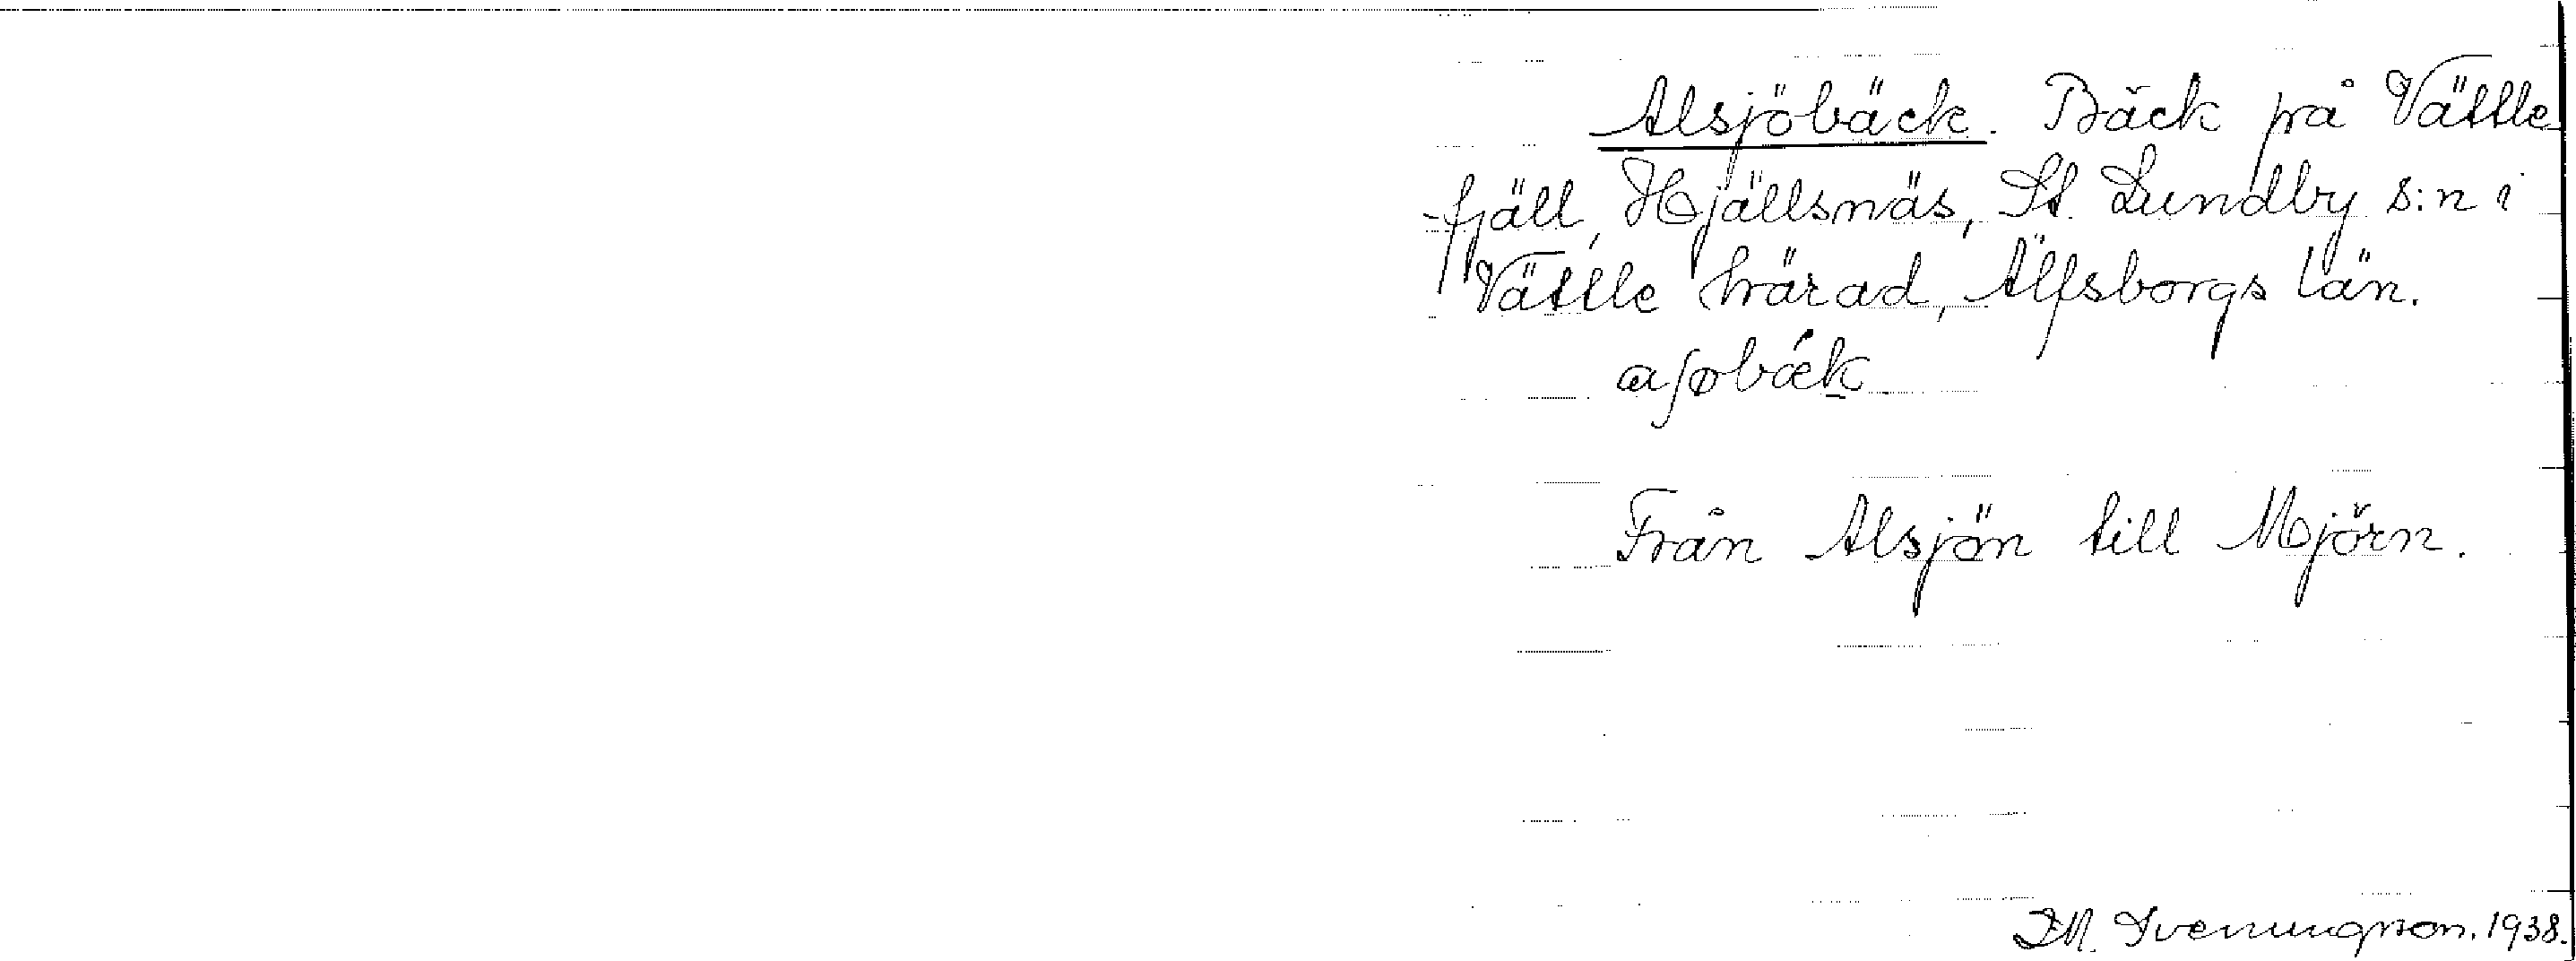 Alsjöbäck. Bäck på Vättle
fjäll, Hjällsnäs, St. Lundby s:n i
Vättle härad, Älfsborgs län.
Från Alsjön till Mjörn.
Svenungsson. 1938.